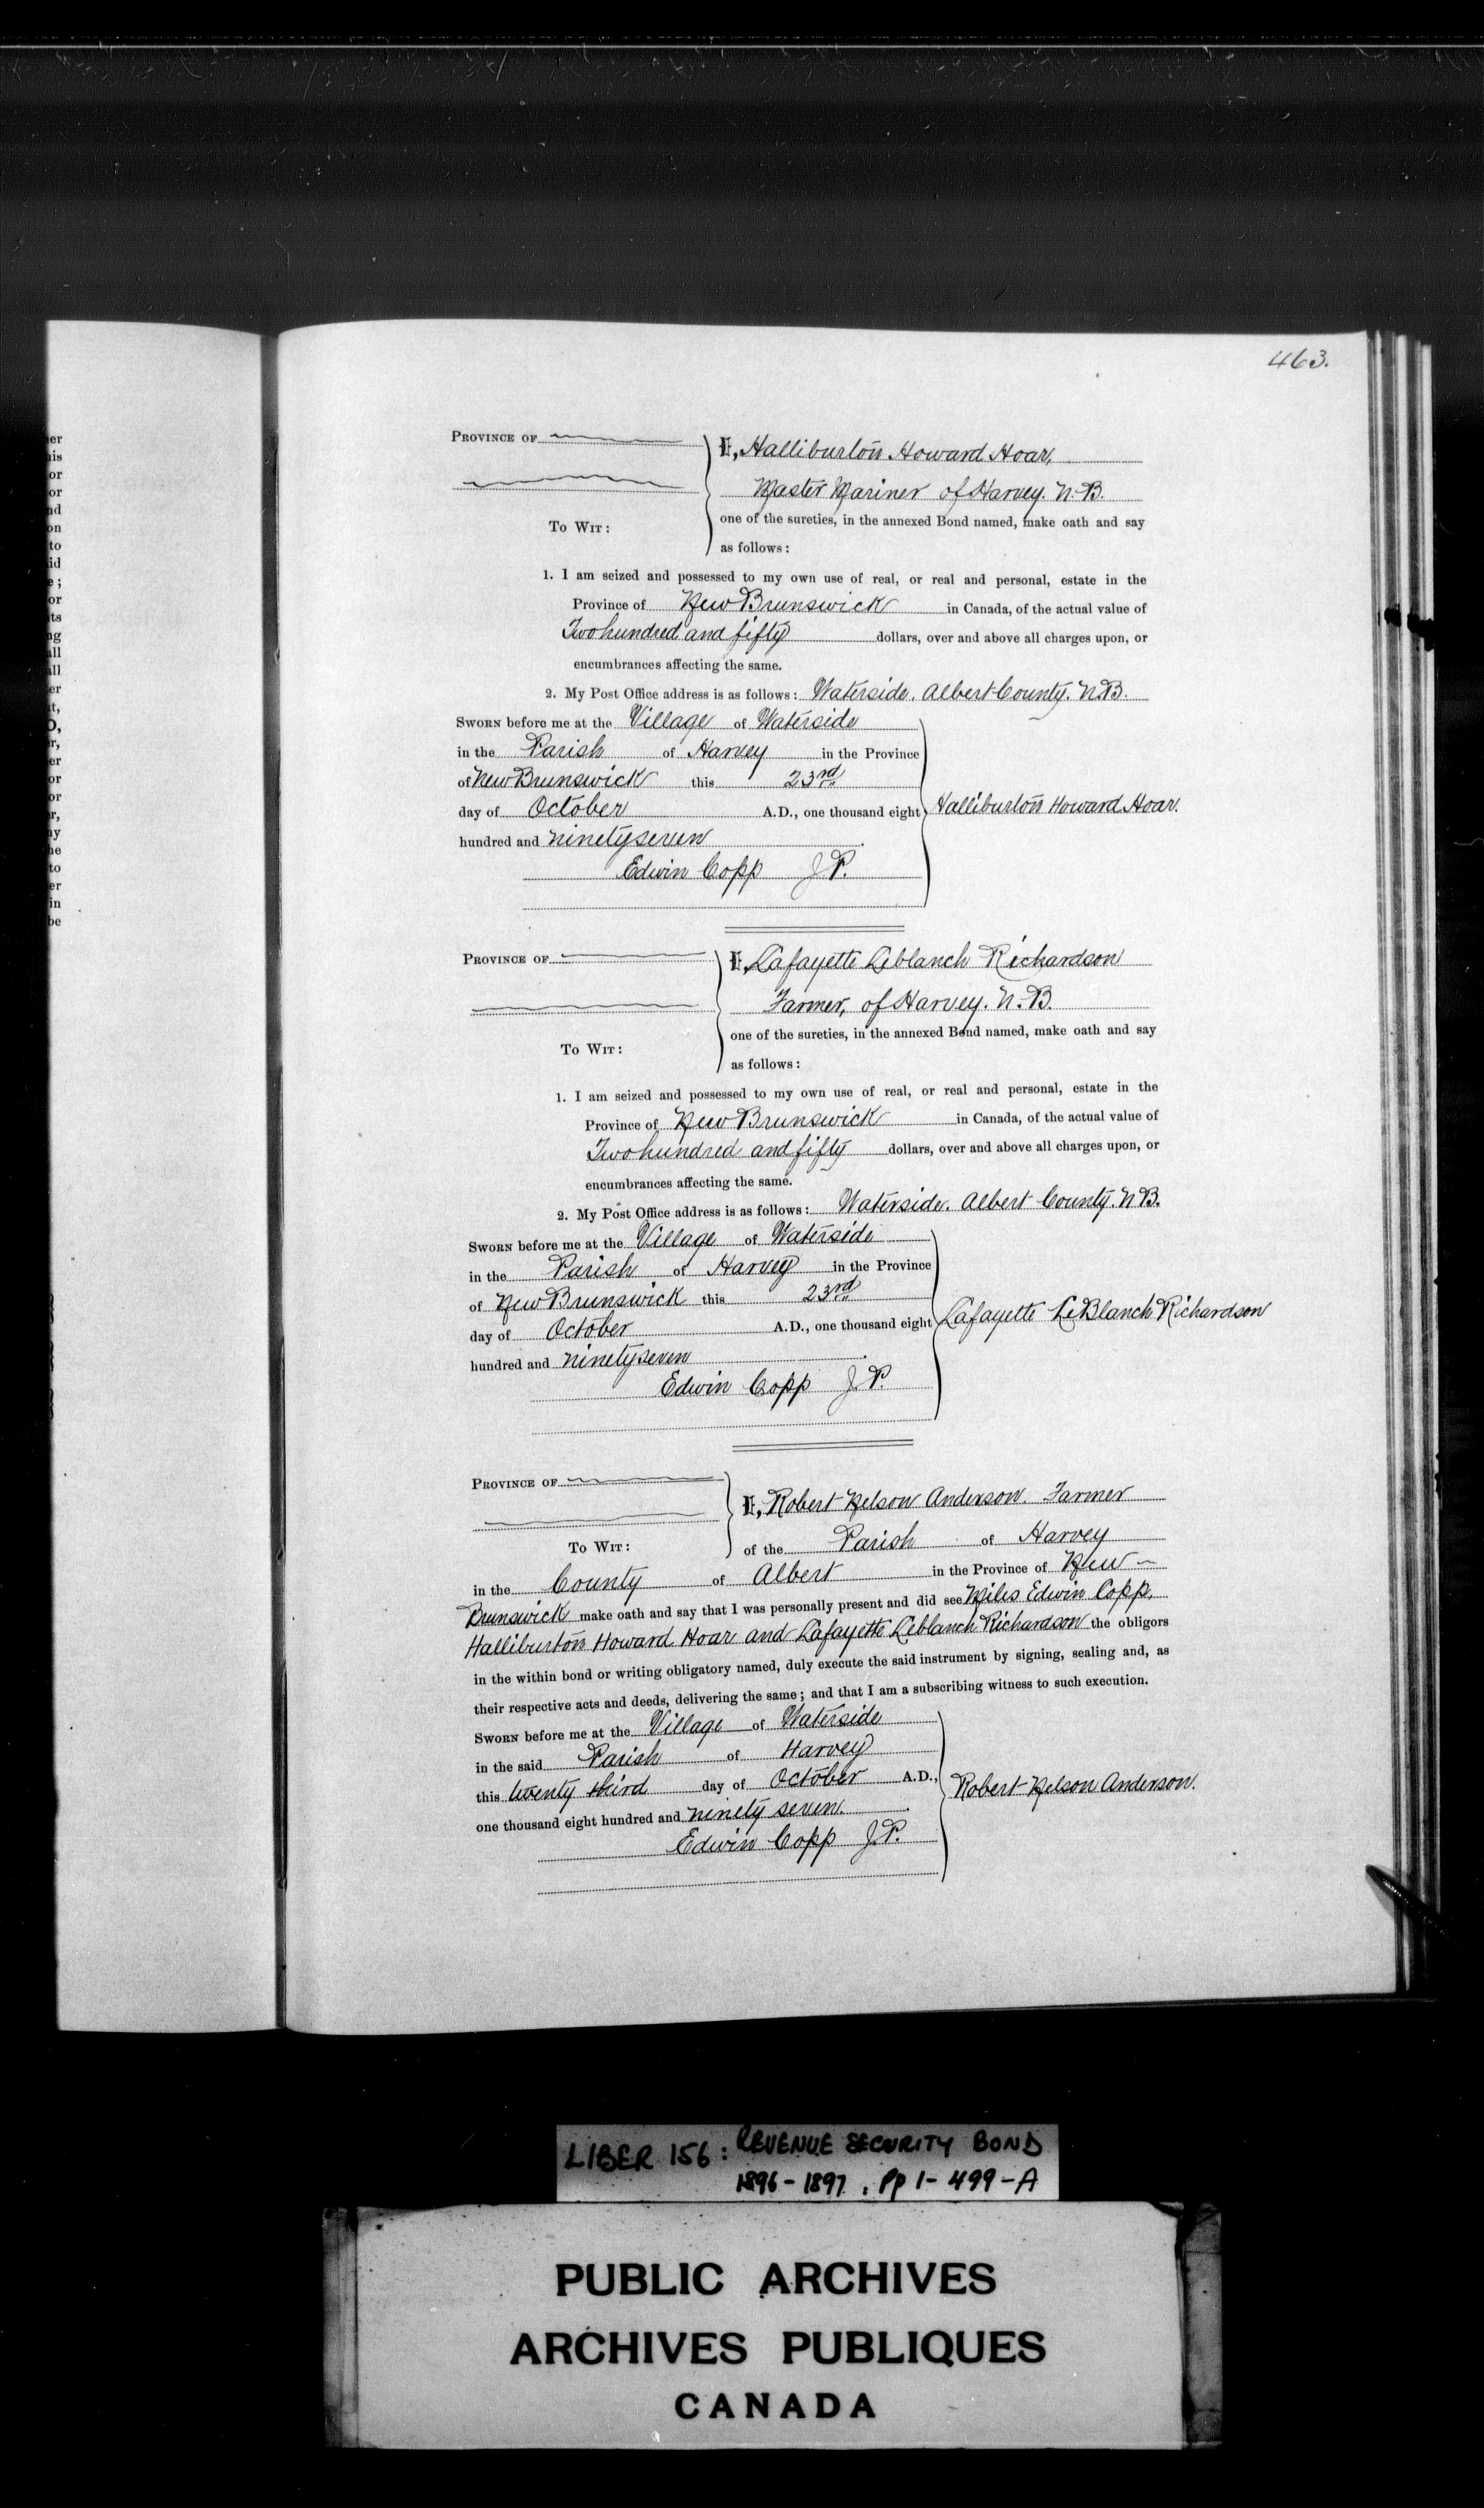 463.
er
his
or
or
nd
on
to
id
e;
or
its
ng
all
all
er
nt,
D,
or,
er
or
or
r,
ny
he
to
er
in
be
PROVINCE OF
I, Halliburton Howard Hoar,
Master Mariner of Harvey. N.B.
TO WIT:
one of the sureties, in the annexed Bond named, make oath and say
as follows:
1. I am seized and possessed to my own use of real, or real and personal, estate in the
Province of New Brunswick in Canada, of the actual value of
Two hundred and fifty dollars, over and above all charges upon, or
encumbrances affecting the same.
2. My Post Office address is as follows: Waterside. Albert County. N.B.
SWORN before me at the Village of Waterside
in the Parish of Harvey in the Province
of New Brunswick this 23rd
day of October A.D., one thousand eight
Halliburton Howard Hoar.
hundred and ninety seven.
Edwin Copp J.P.
PROVINCE OF
I, Lafayette Leblanch Richardson
Farmer, of Harvey. N.B.
TO WIT:
one of the sureties, in the annexed Bond named, make oath and say
as follows:
1. I am seized and possessed to my own use of real, or real and personal, estate in the
Province of New Brunswick in Canada, of the actual value of
Two hundred and fifty dollars, over and above all charges upon, or
encumbrances affecting the same.
2. My Post Office address is as follows: Waterside. Albert County. N.B.
SWORN before me at the Village of Waterside
in the Parish of Harvey in the Province
of New Brunswick this 23rd
day of October A.D., one thousand eight
Lafayette LeBlanch Richardson
hundred and ninety seven.
Edwin Copp J.P.
PROVINCE OF
I, Robert Nelson Anderson. Farmer
TO WIT:
of the Parish of Harvey
in the County of Albert in the Province of New
Brunswick make oath and say that I was personally present and did see Miles Edwin Copp,
Halliburton Howard Hoar and Lafayette Leblanch Richardson the obligors
in the within bond or writing obligatory named, duly execute the said instrument by signing, sealing and, as
their respective acts and deeds, delivering the same; and that I am a subscribing witness to such execution.
SWORN before me at the Village of Waterside
in the said Parish of Harvey
this twenty third day of October A.D.,
Robert Nelson Anderson.
one thousand eight hundred and ninety seven.
Edwin Copp J.P.
LIBER 156: REVENUE SECURITY BOND
1896-1897, Pp 1-499-A
PUBLIC ARCHIVES
ARCHIVES PUBLIQUES
CANADA